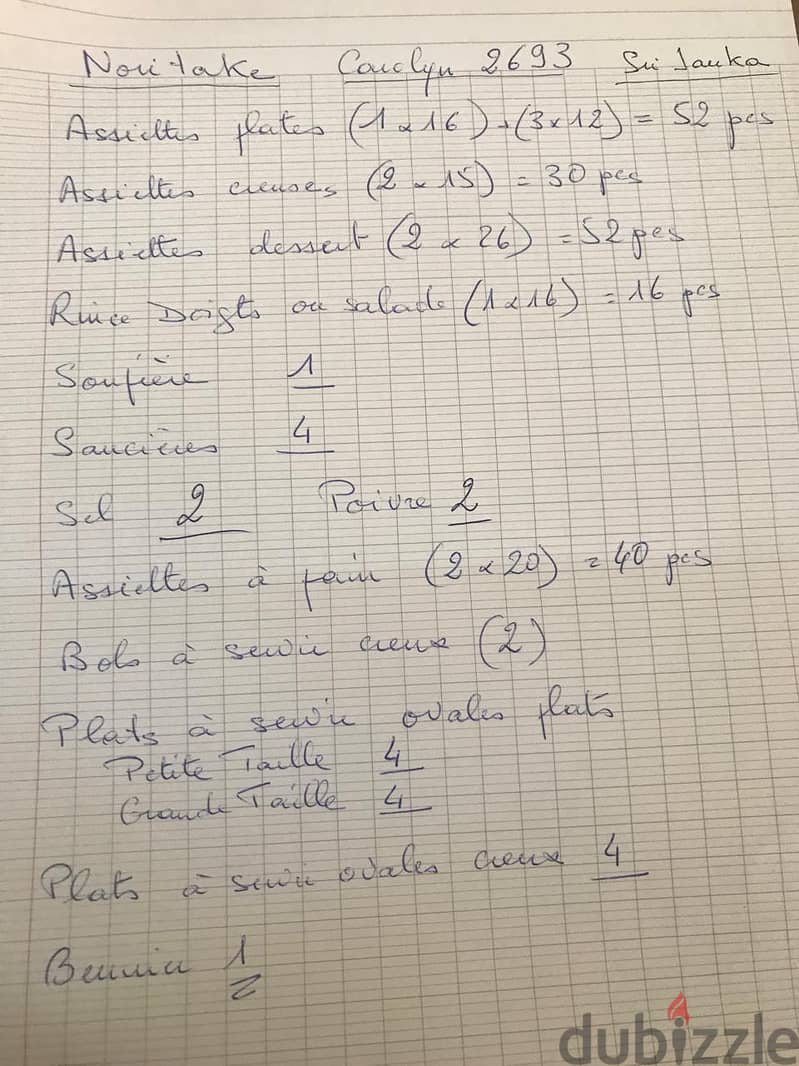 Noritake Carolyn 2693 Sri Lanka
Assiettes plates (1 x 16) + (3 x 12) = 52 pcs
Assiettes creuses (2 x 15) = 30 pcs
Assiettes dessert (2 x 26) = 52 pcs
Rince Doigts ou salade (1 x 16) = 16 pcs
Soupière 1
Saucières 4
Sel 2 Poivre 2
Assiettes à pain (2 x 20) = 40 pcs
Bols à servir creux (2)
Plats à servir ovales plats
Petite Taille 4
Grande Taille 4
Plats à servir ovales creux 4
Beurrier 1
dubizzle